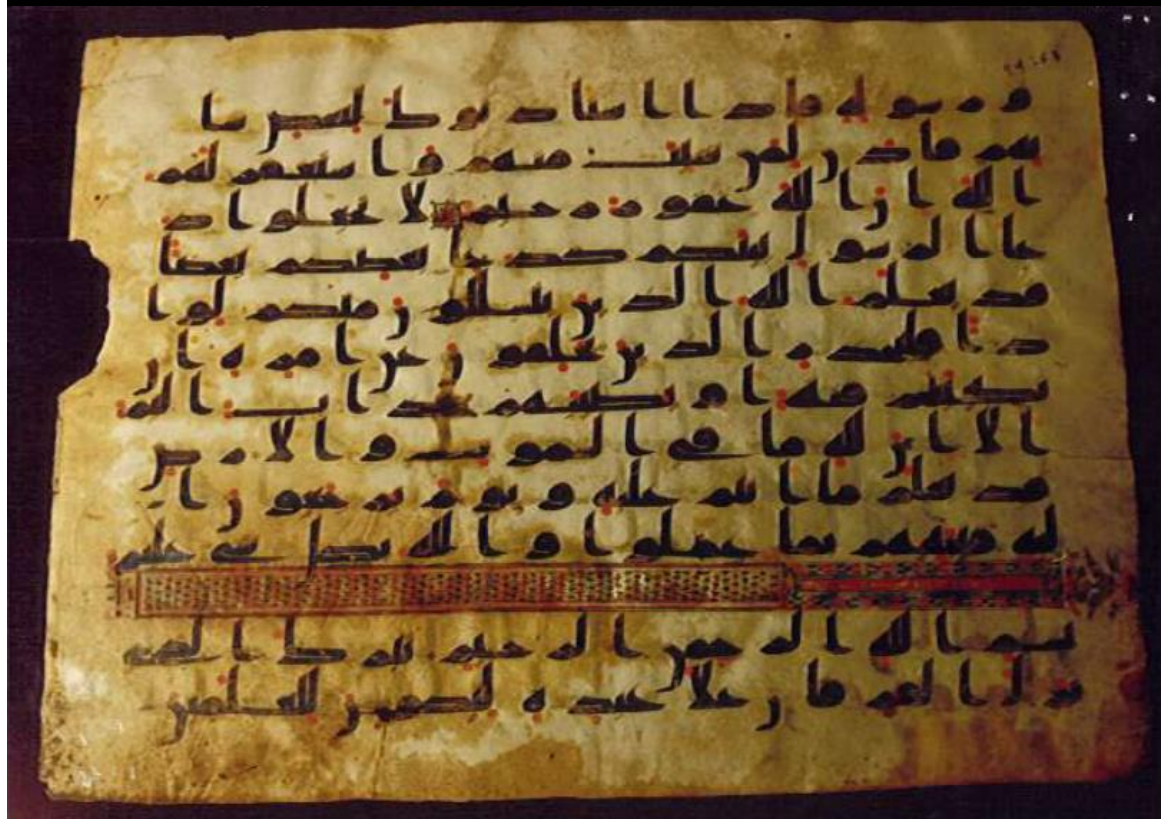 ورسوله فاذا استاذنوك لبعض شا
نهم فاذن لمن شئت منهم واستغفر لهم
الله ان الله غفور رحيم لا تجعلوا د
عا الرسول بينكم كدعا بعضكم بعضا
قد يعلم الله الذين يتسللون منكم لوا
ذا فليحذر الذين يخلفون عن امره ان
تصيبهم فتنة او يصيبهم عذاب اليم
الا ان لله ما في السموت والارض
قد يعلم ما انتم عليه ويوم يرجعون ا
ليه فينبئهم بما عملوا والله بكل شي عليم
بسم الله الرحمن الرحيم تبرك الذي
نزل الفرقان على عبده ليكون للعلمين